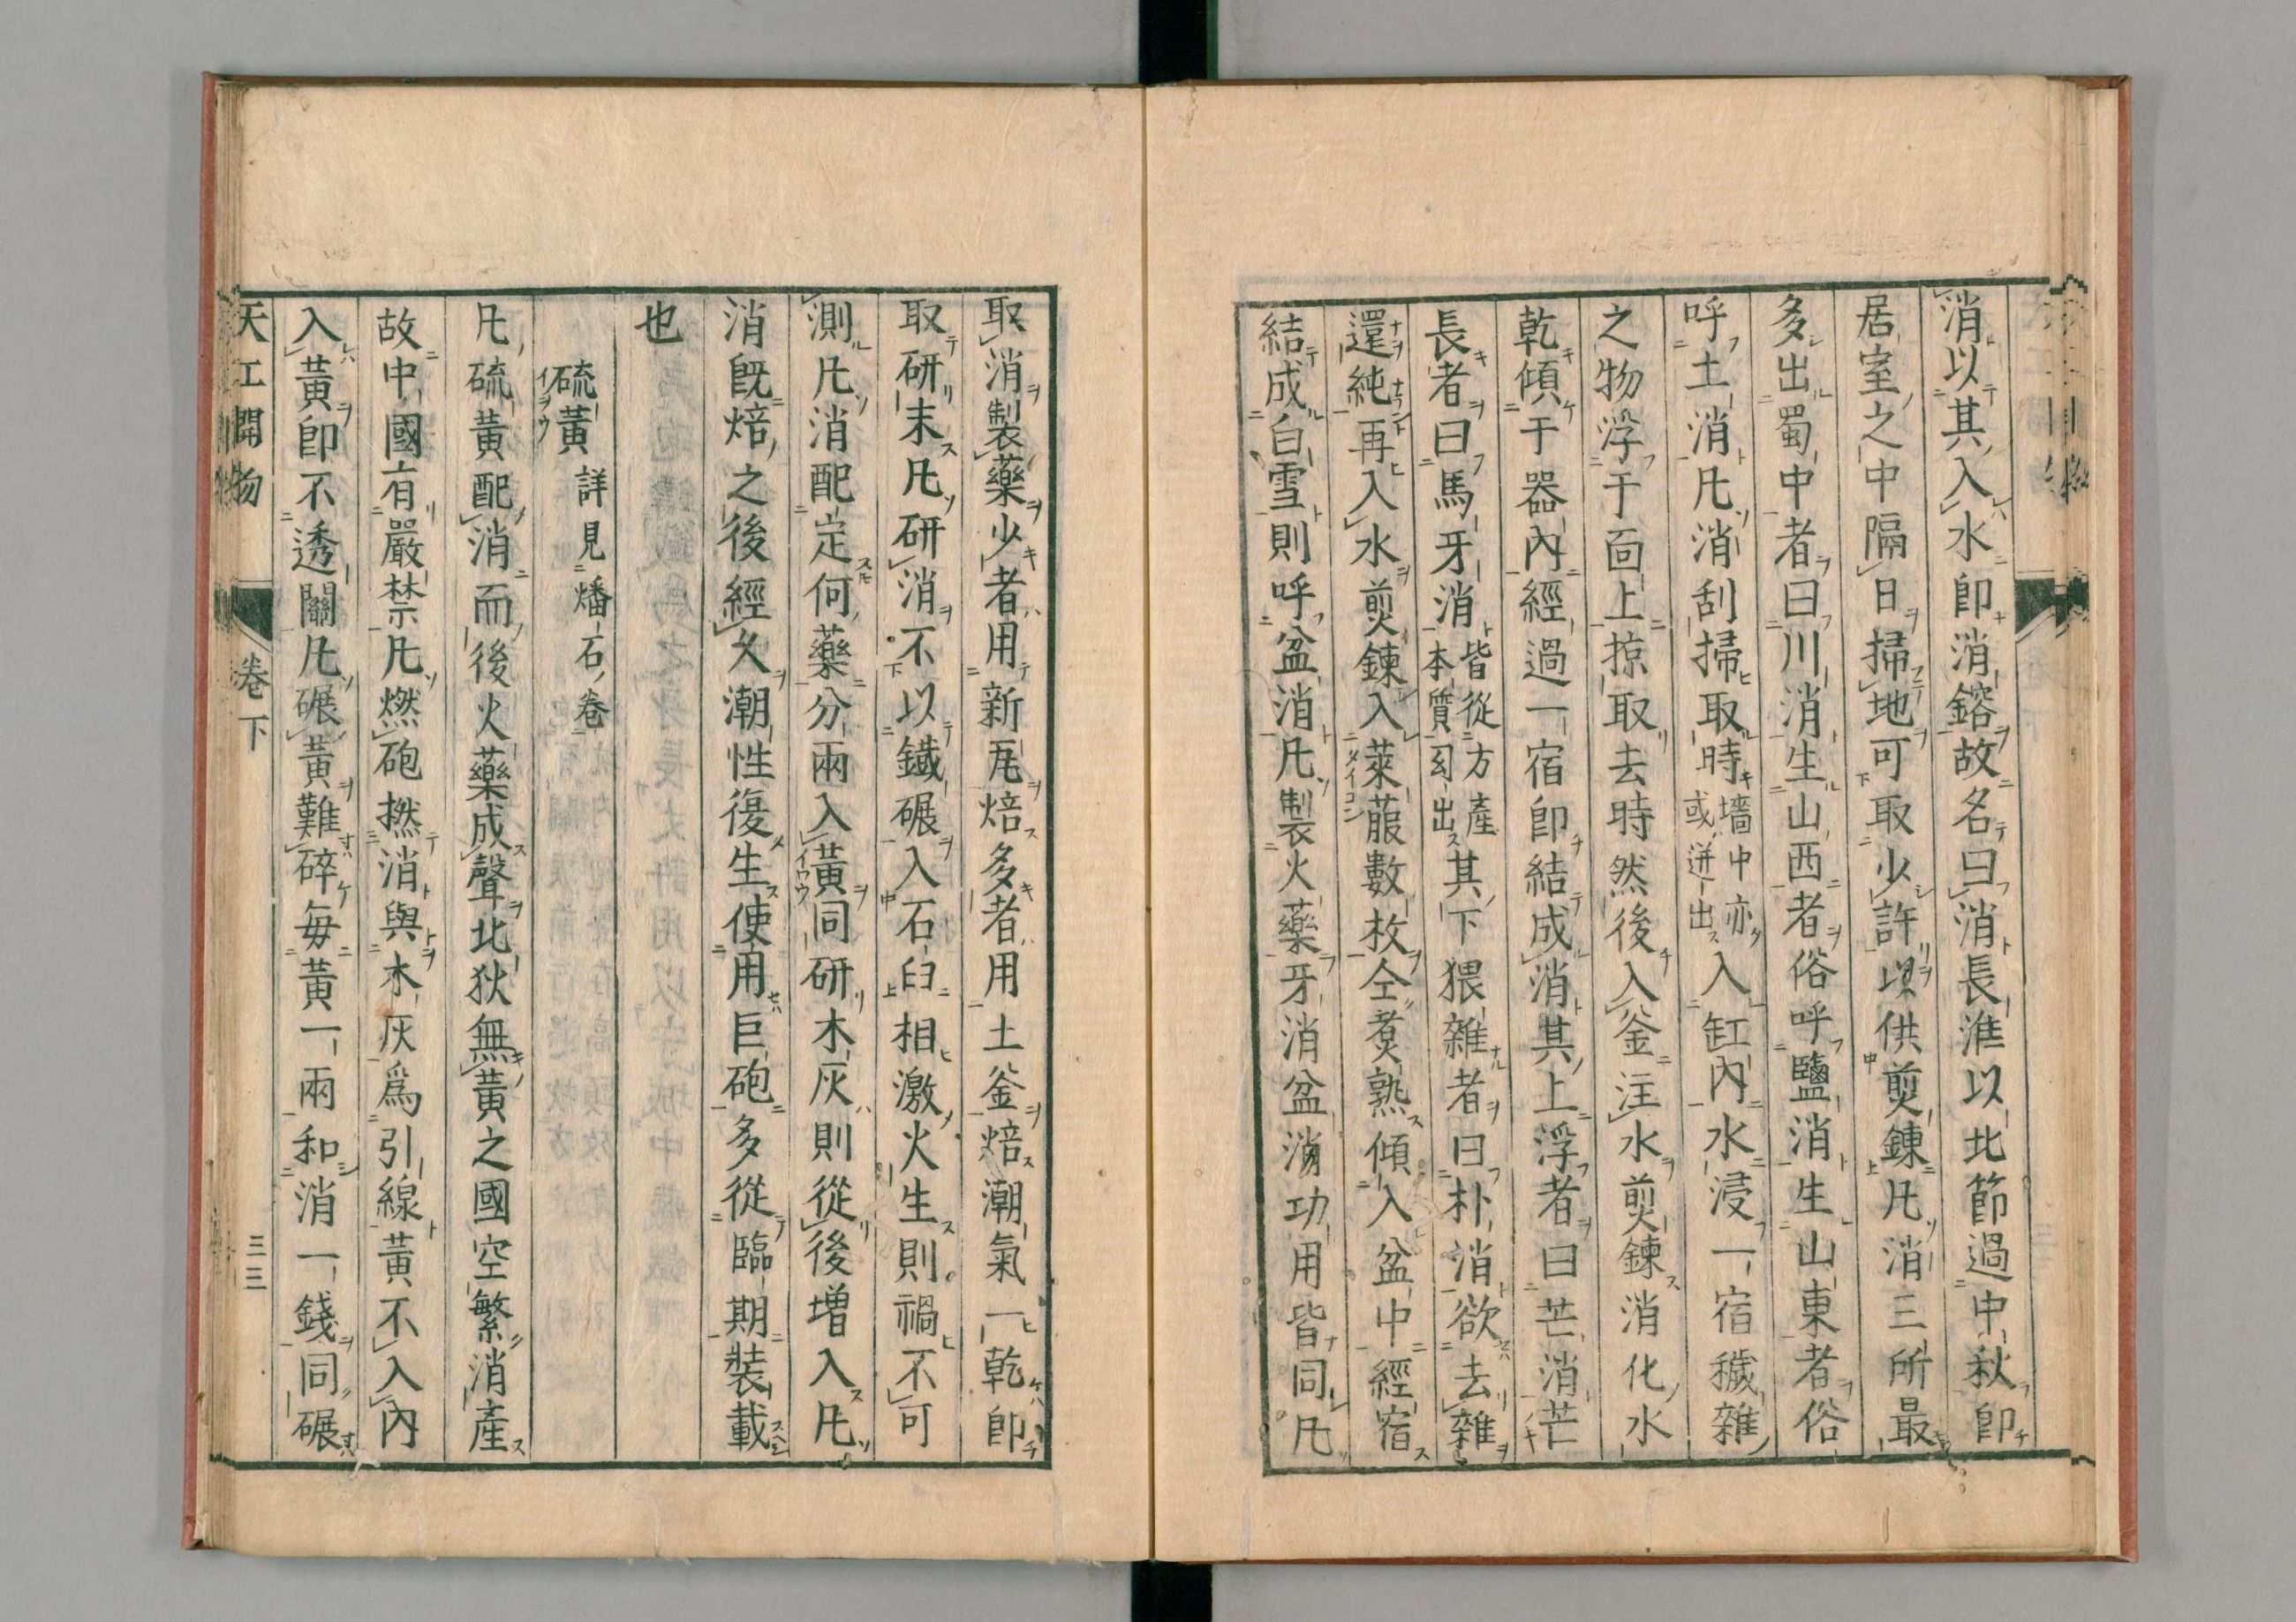 消以其入水卽消鎔故名曰消長淮以北節過中秋卽
居室之中隔日掃地可取少許以供煎鍊凡消三所最
多出蜀中者曰川消生山西者俗呼鹽消生山東者俗
呼土消凡消刮掃取時墻中亦或迸出入缸內水浸一宿穢雜
之物浮于面上掠取去時然後入釜注水煎鍊消化水
乾傾于器內經過一宿卽結成消其上浮者曰芒消芒
長者曰馬牙消皆從方產本質幻出其下猥雜者曰朴消欲去雜
還純再入水煎鍊入萊菔數枚仝煮熟傾入盆中經宿
結成白雪則呼盆消凡製火藥牙消盆消功用皆同凡
取消製藥少者用新瓦焙多者用土釜焙潮氣一乾卽
取研末凡研消不以鐵碾入石臼相激火生則禍不可
測凡消配定何藥分兩入黃同研木灰則從後增入凡
消旣焙之後經久潮性復生使用巨砲多從臨期裝載
也
硫黃 詳見燔石卷
凡硫黃配消而後火藥成聲北狄無黃之國空繁消產
故中國有嚴禁凡燃砲撚消與木灰爲引線黃不入內
入黃卽不透關凡碾黃難碎每黃一兩和消一錢同碾
天工開物 卷下 三三